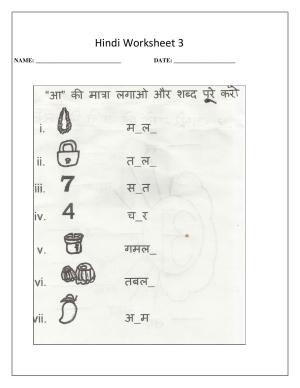 Hindi Worksheet 3
NAME: ____________________ DATE: ____________________
"आ" की मात्रा लगाओ और शब्द पूरे करो
i. म_ल_
ii. त_ल_
iii. 7 स_त
iv. 4 च_र
v. गमल_
vi. तबल_
vii. अ_म